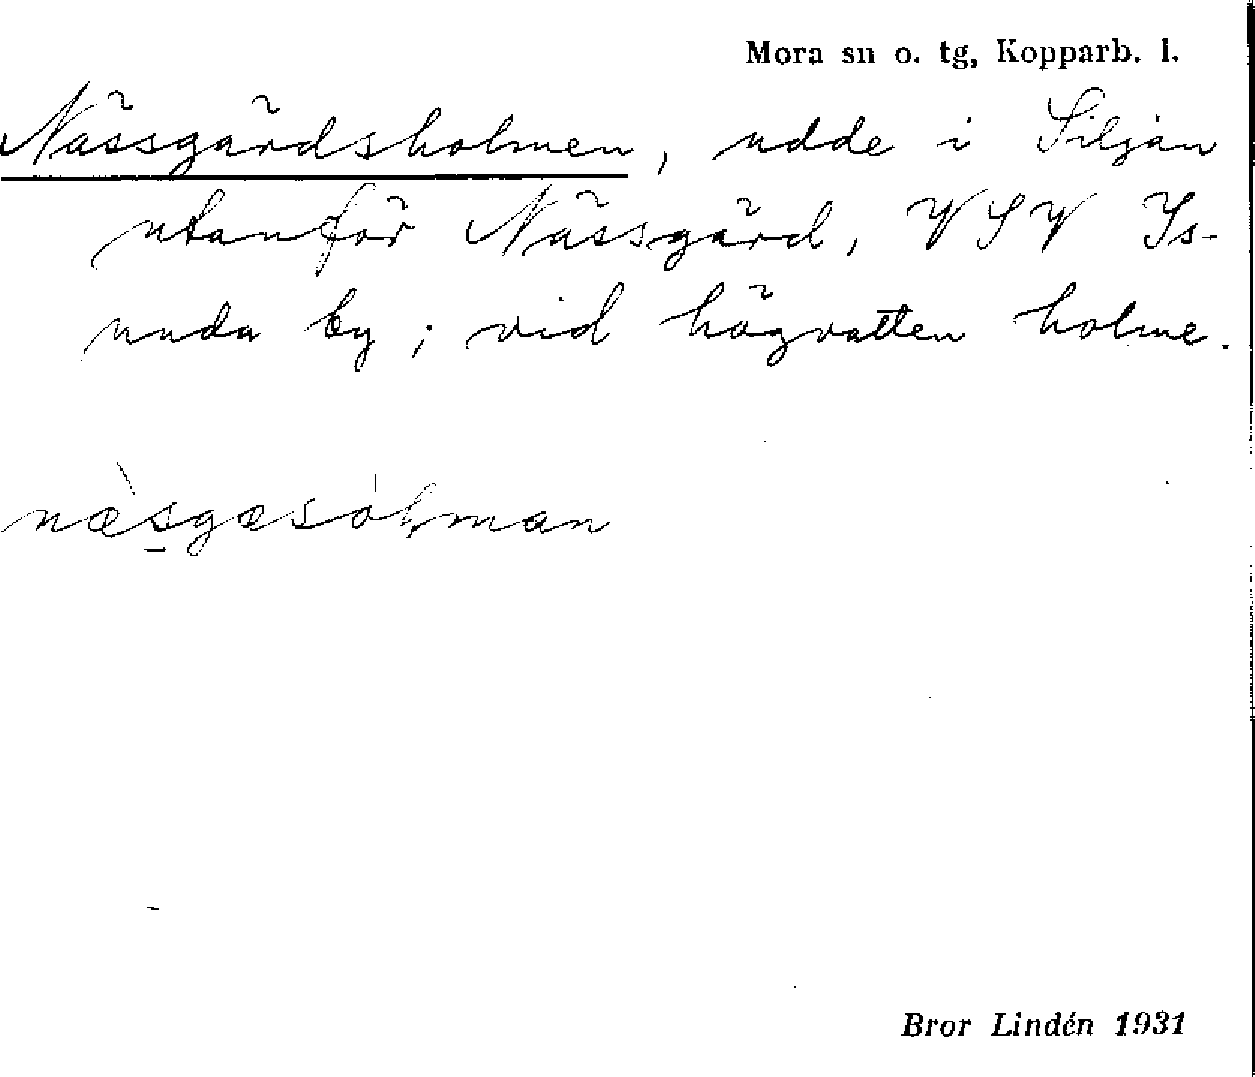 Mora sn o. tg, Kopparb. l.
Nässgårdsholmen, udde i Siljan
utanför Nässgård, VSV Is-
unda by; vid högvatten holme.
næ̀sgæsóḷman
Bror Lindén 1931